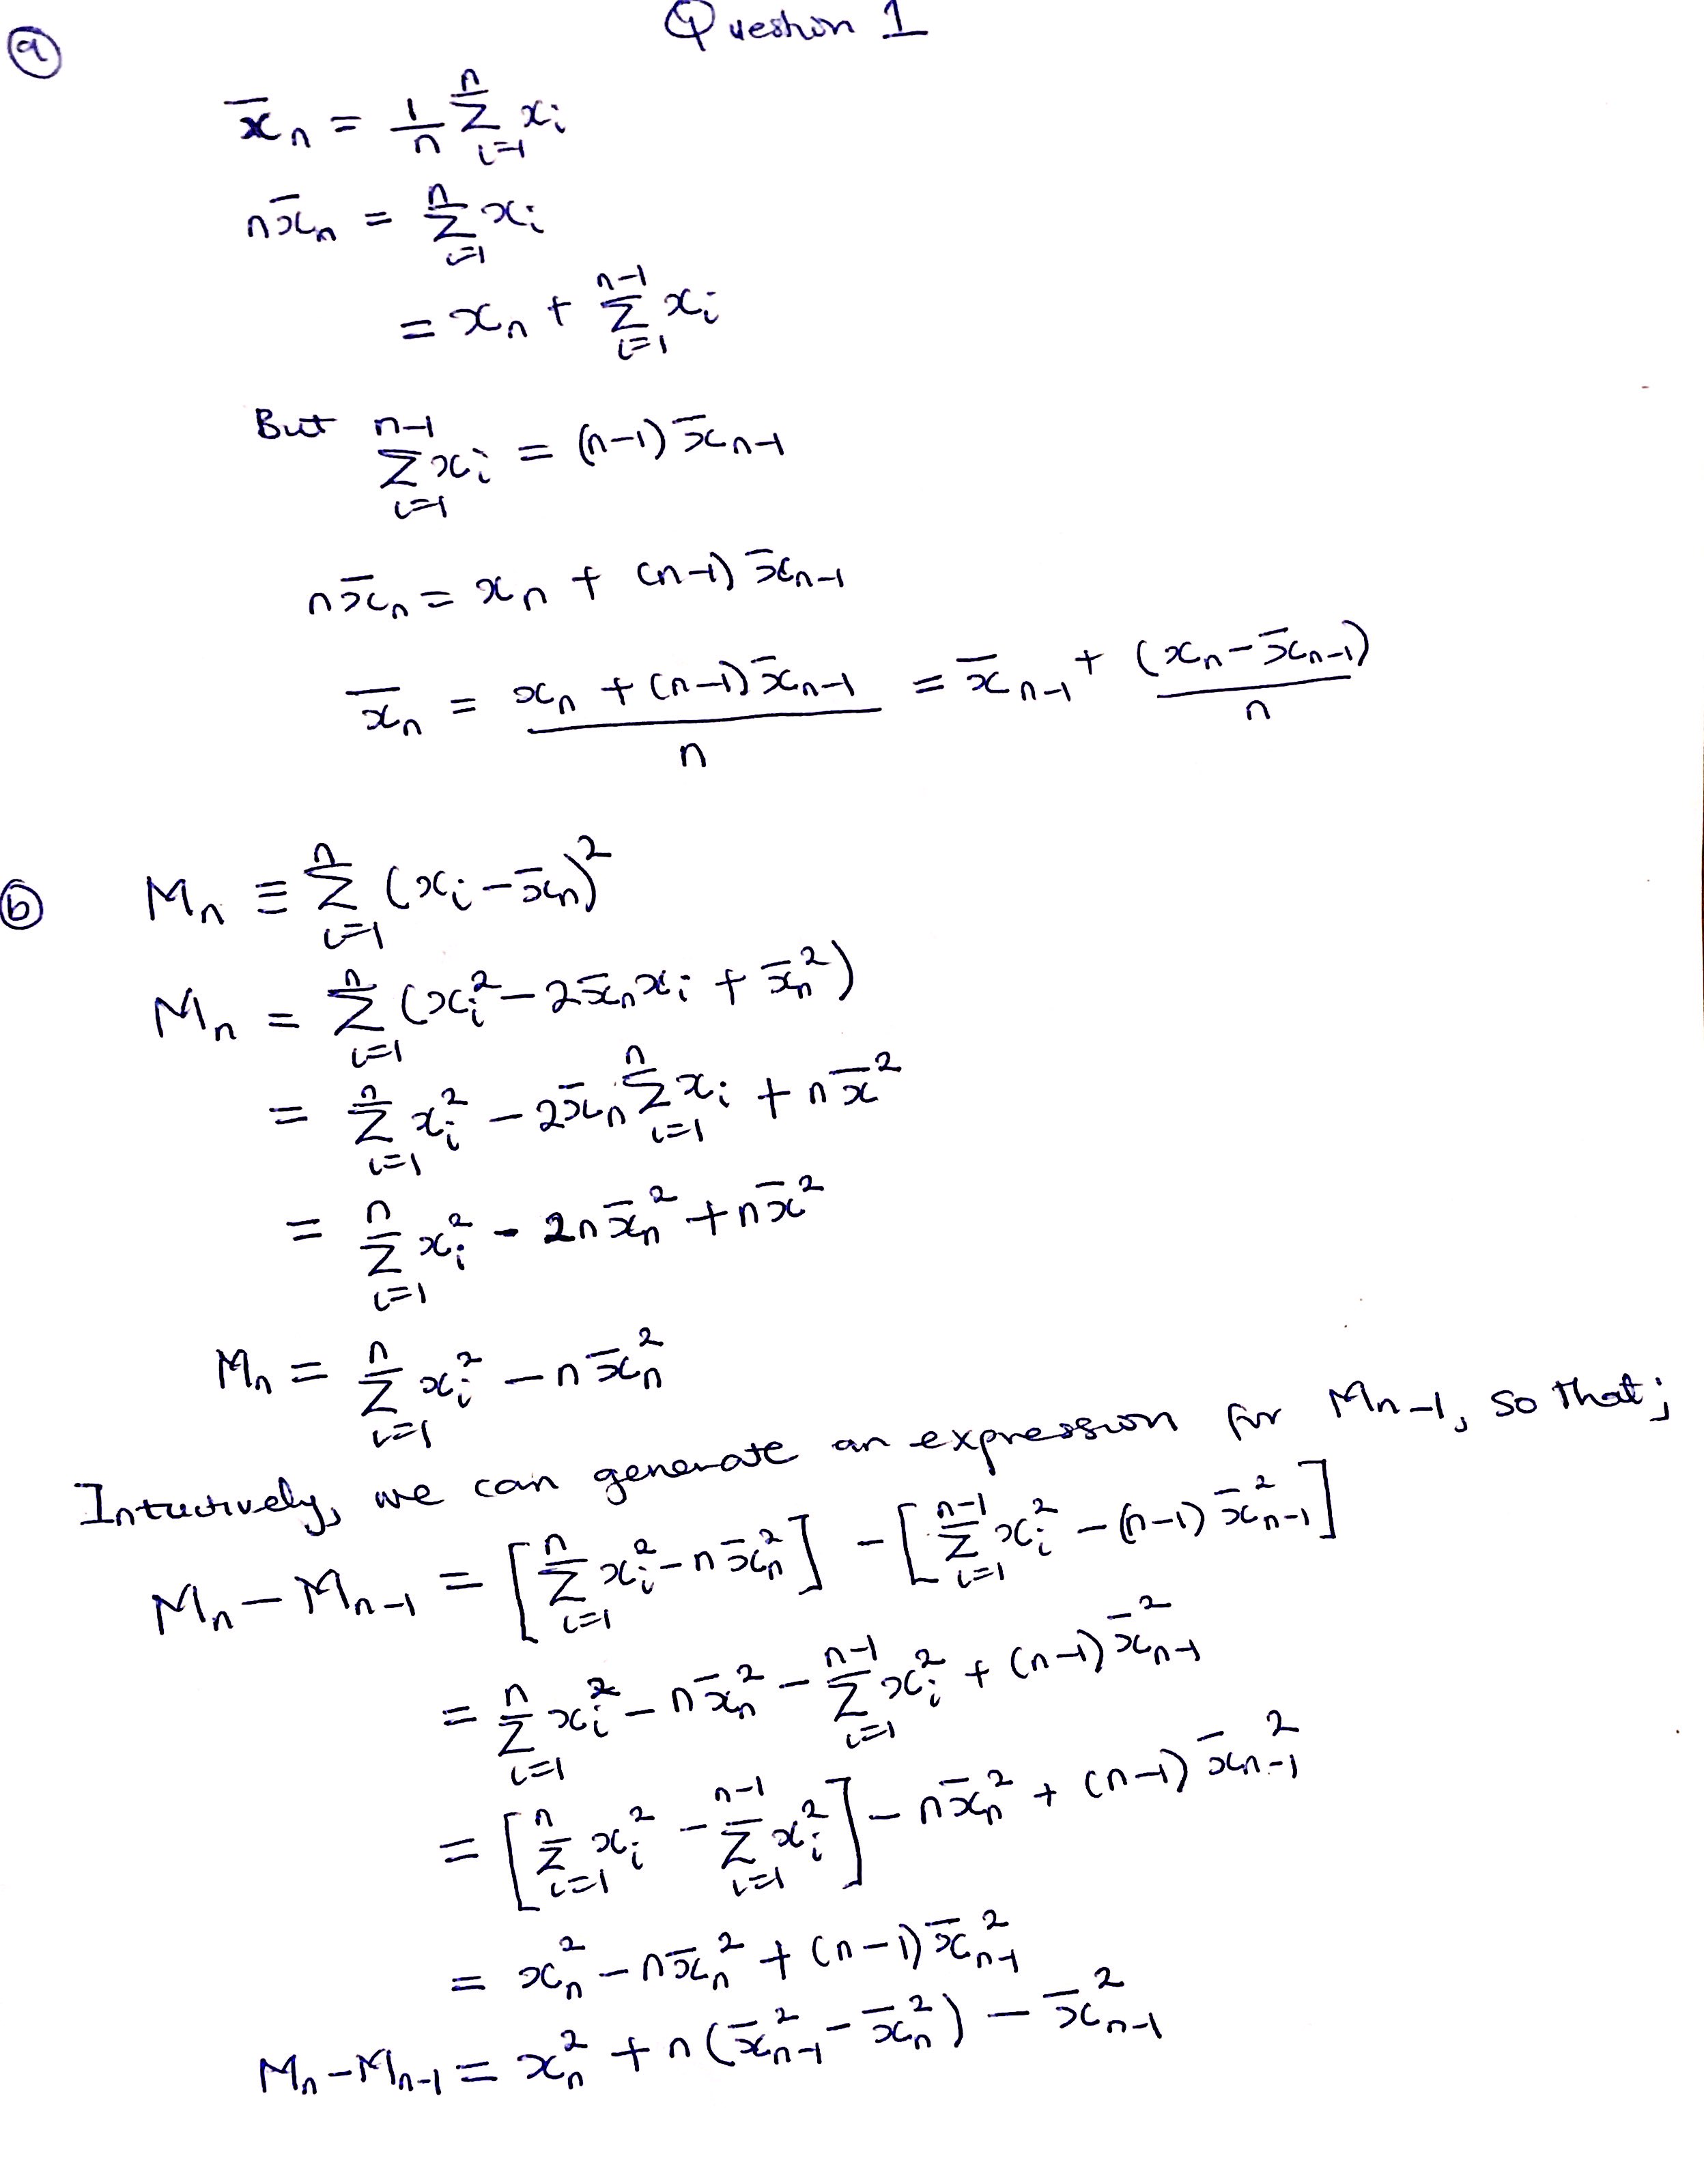 Question 1
(a)
x̄ₙ = 1/n Σᵢ₌₁ⁿ xᵢ
nx̄ₙ = Σᵢ₌₁ⁿ xᵢ
= xₙ + Σᵢ₌₁ⁿ⁻¹ xᵢ
But Σᵢ₌₁ⁿ⁻¹ xᵢ = (n-1) x̄ₙ₋₁
nx̄ₙ = xₙ + (n-1) x̄ₙ₋₁
x̄ₙ = (xₙ + (n-1) x̄ₙ₋₁)/n = x̄ₙ₋₁ + (xₙ - x̄ₙ₋₁)/n
(b) Mₙ ≡ Σᵢ₌₁ⁿ (xᵢ - x̄ₙ)²
Mₙ = Σᵢ₌₁ⁿ (xᵢ² - 2x̄ₙxᵢ + x̄ₙ²)
= Σᵢ₌₁ⁿ xᵢ² - 2x̄ₙ Σᵢ₌₁ⁿ xᵢ + nx̄²
= Σᵢ₌₁ⁿ xᵢ² - 2nx̄ₙ² + nx̄²
Mₙ = Σᵢ₌₁ⁿ xᵢ² - nx̄ₙ²
Intuitively, we can generate an expression for Mₙ₋₁, so that;
Mₙ - Mₙ₋₁ = [Σᵢ₌₁ⁿ xᵢ² - nx̄ₙ²] - [Σᵢ₌₁ⁿ⁻¹ xᵢ² - (n-1) x̄ₙ₋₁²]
= Σᵢ₌₁ⁿ xᵢ² - nx̄ₙ² - Σᵢ₌₁ⁿ⁻¹ xᵢ² + (n-1) x̄ₙ₋₁²
= [Σᵢ₌₁ⁿ xᵢ² - Σᵢ₌₁ⁿ⁻¹ xᵢ²] - nx̄ₙ² + (n-1) x̄ₙ₋₁²
= xₙ² - nx̄ₙ² + (n-1) x̄ₙ₋₁²
Mₙ - Mₙ₋₁ = xₙ² + n(x̄ₙ₋₁² - x̄ₙ²) - x̄ₙ₋₁²